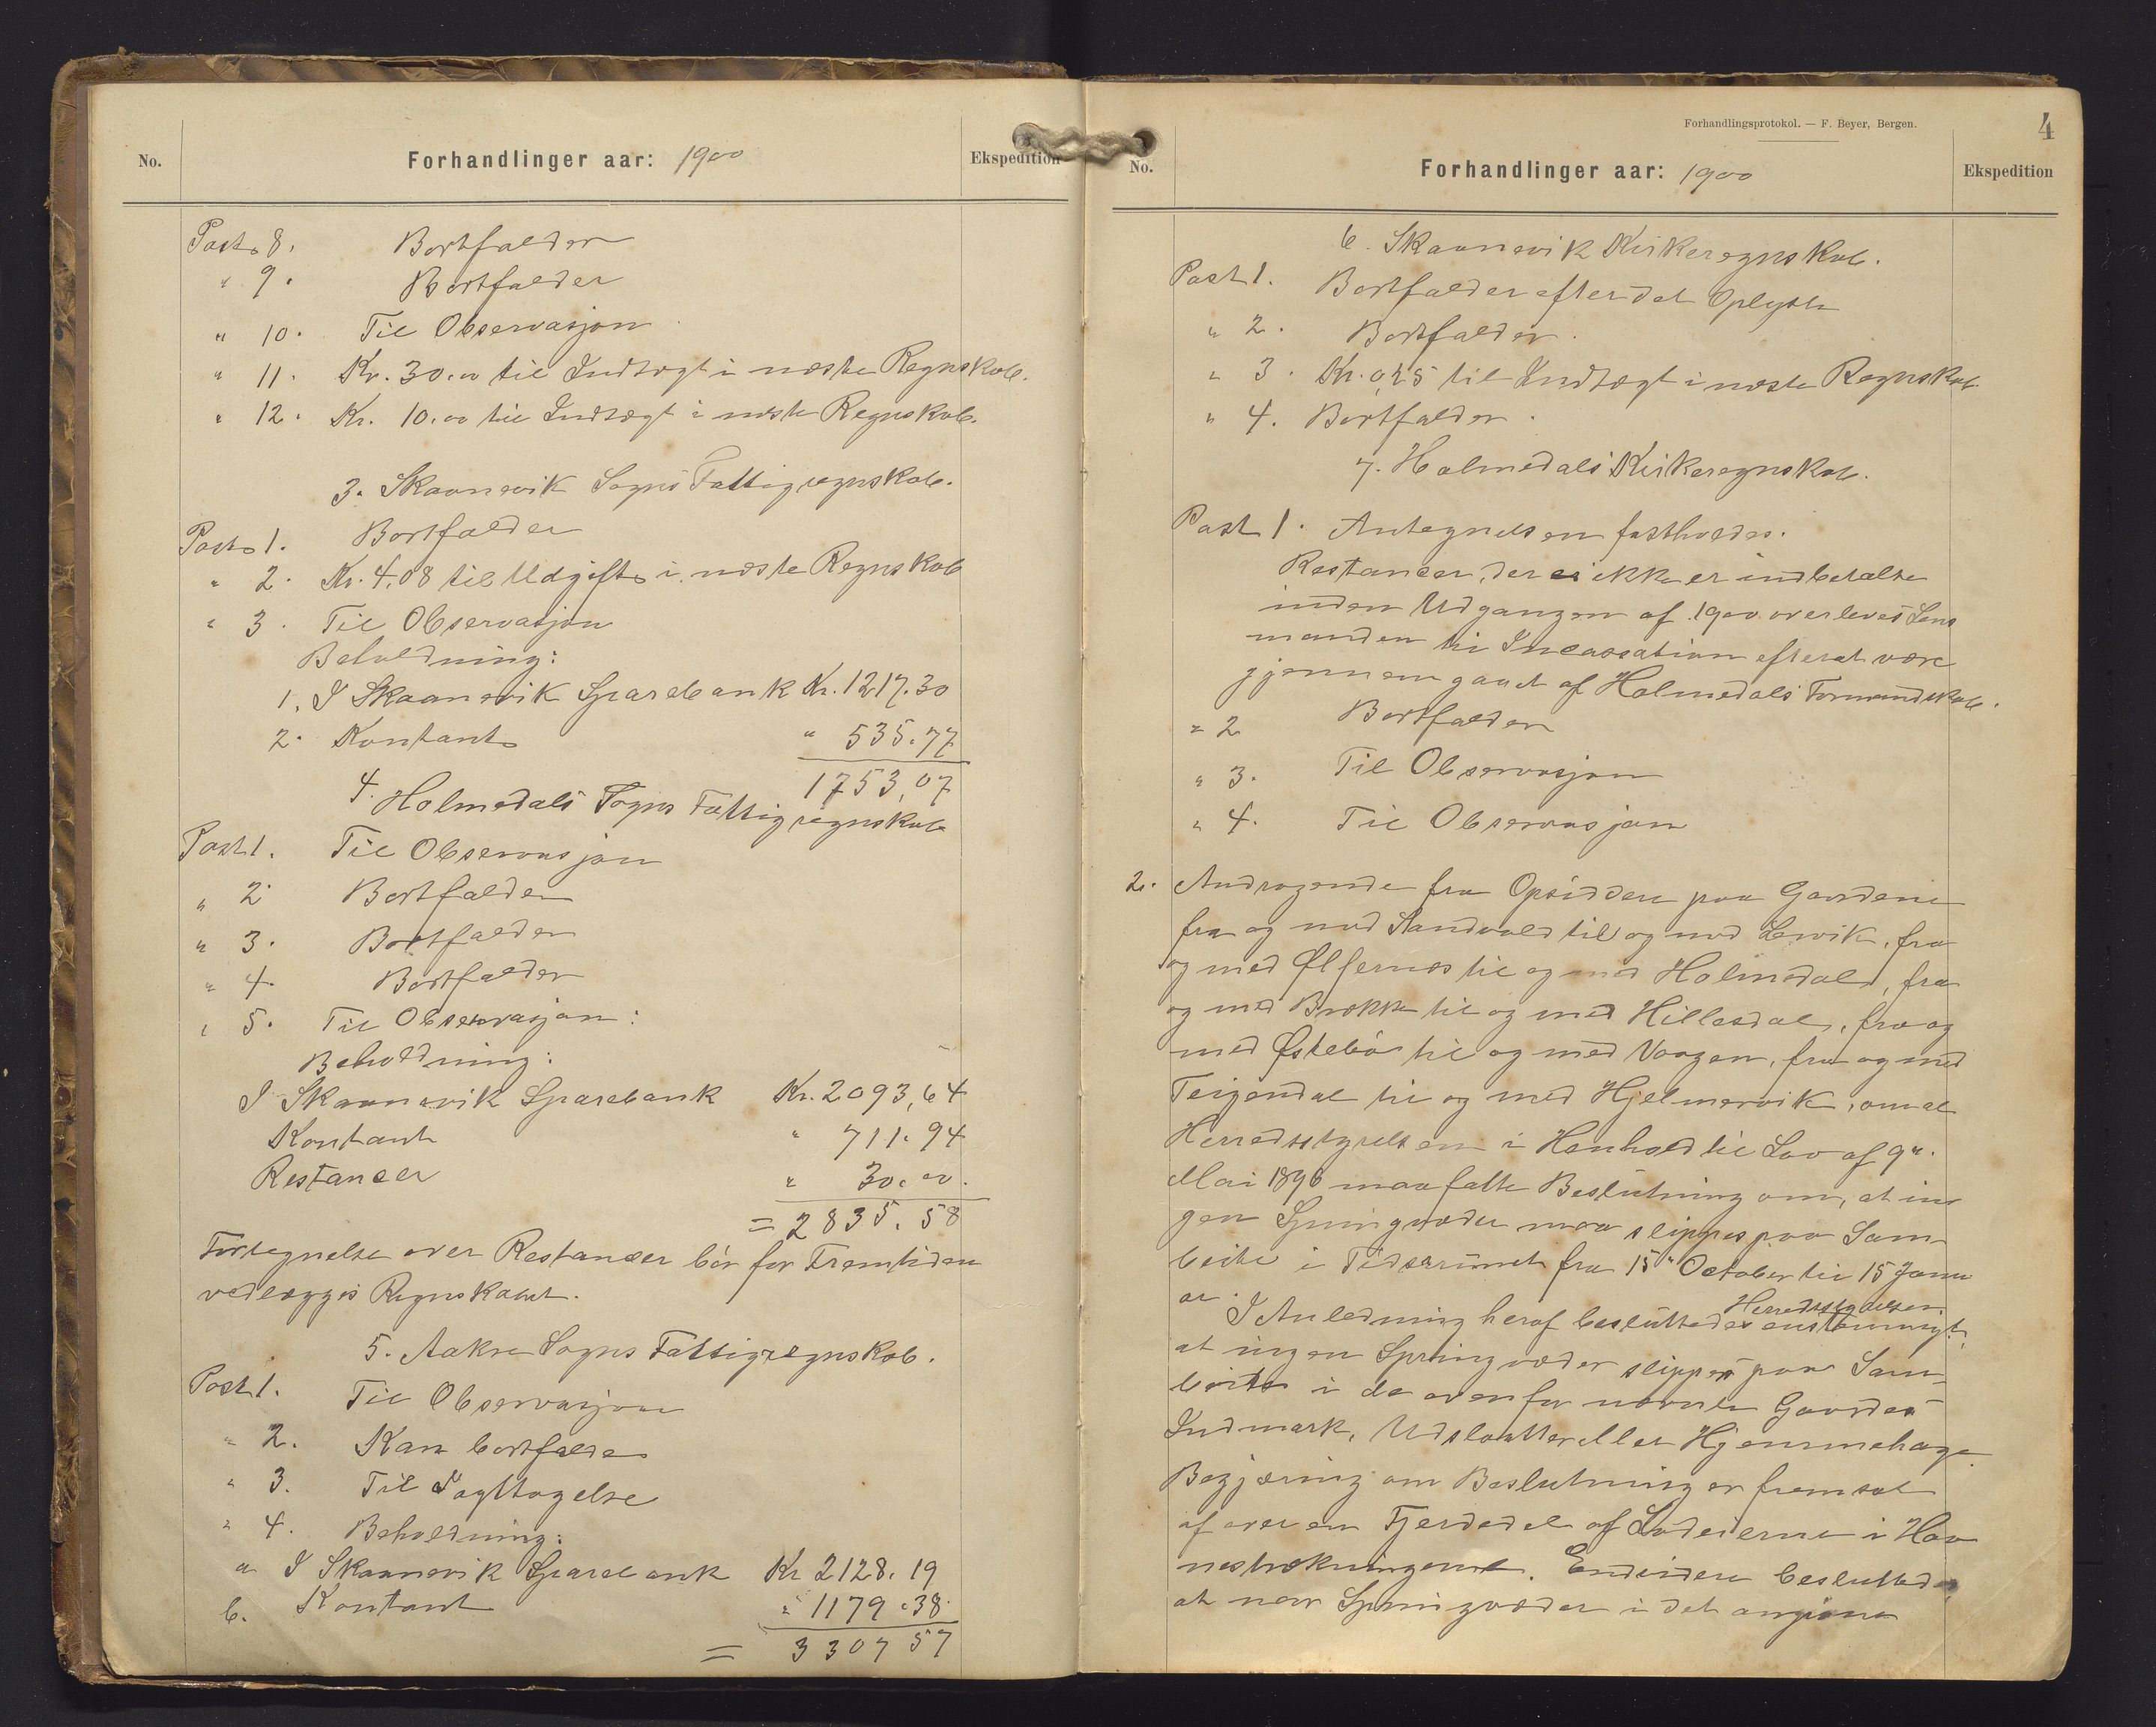 No.
Forhandlinger aar: 1900
Ekspedition
Post 8. Bortfalder
" 9. Bortfalder
" 10. Til Observasjon
" 11. Kr. 30.00 til Indtægt i næste Regnskab.
" 12. Kr. 10.00 til Indtægt i næste Regnskab.
3. Skaanevik Sogns Fattigregnskab.
Post 1. Bortfalder
" 2. Kr. 4.08 til Udgift i næste Regnskab
" 3. Til Observasjon
Beholdning:
1. I Skaanevik Sparebank Kr. 1217.30
2. Kontant " 535.77
1753,07
4. Holmedals Sogns Fattigregnskab
Post 1. Til Observasjon
" 2 Bortfalder
" 3. Bortfalder
" 4. Bortfalder
" 5. Til Observasjon:
Beholdning:
I Skaanevik Sparebank Kr. 2093,64
Kontant " 711.94
Restancer " 30.00.
= 2835.58
Fortegnelse over Restancer bør for Fremtiden
vedlægges Regnskabet.
5. Aakre Sogns Fattigregnskab.
Post 1. Til Observasjon
" 2. Kan bortfalde
" 3. Til Iagttagelse
" 4. Beholdning:
a I Skaanevik Sparebank Kr 2128.19
b. Kontant " 1179.38
= 3307 57
Forhandlingsprotokol. — F. Beyer, Bergen.
4
No.
Forhandlinger aar: 1900
Ekspedition
6. Skaanevik Kirkeregnskab.
Post 1. Bortfalder efter det Oplyste
" 2. Bortfalder.
" 3. Kr. 0,25 til Indtægt i næste Regnskab
" 4. Bortfalder.
7. Holmedals Kirkeregnskab.
Post 1. Antegnelsen fastholdes.
Restancer, der ikke er indbetalte
inden Udgangen af 1900 overleves Lens
manden til Incassation efterat være
gjennemgaaet af Holmedals Formandskab.
" 2 Bortfalder
" 3. Til Observasjon
" 4. Til Observasjon
2. Andragende fra Opsiddere paa Gaardene
fra og med Sandvold til og med Lervik, fra
og med Ølfernes til og med Holmedal, fra
og med Brekke til og med Hillesdal, fra og
med Østebø til og med Vaagen, fra og med
Teigendal til og med Hjelmervik, om at
Herredsstyrelsen i Henhold til Lov af 9de
Mai 1896 maa fatte Beslutning om, at in
gen Springvæder maa slippes paa Sam
beite i Tidsrummet fra 15de October til 15 Janu
ar.
Herredsstyrelsen
I Anledning heraf besluttedes enstemmigt,
at ingen Springvæder slippes paa Sam
beite i de ovenfor nævnte Gaardes
Indmark, Udslaatter eller Hjemmehage
Begjæring om Beslutning er fremsat
af over en Fjerdedel af Lodeierne i Hav
nestrækningerne. Endvidere besluttedes
at naar Springvæder i det angivne